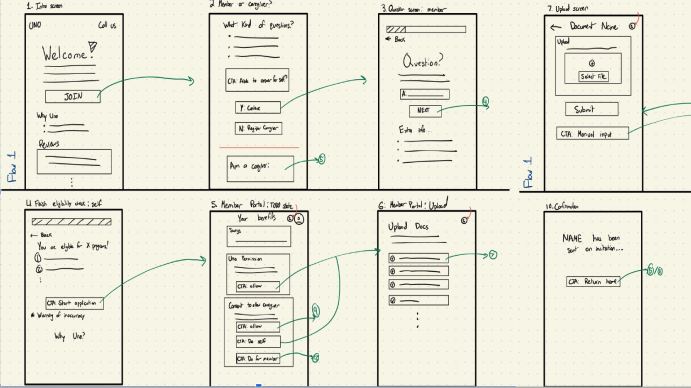 1. Intro screen
UNO Call us
Welcome!
JOIN
Why Uno
Reviews
Flow 1
2 Member or caregiver?
What kind of questions?
CTA: Able to answer for self?
Y: Continue
N: Register Caregiver
Am a caregiver:
3. Question screen: member
← Back
Question?
A:
NEXT
Extra info...
7. Upload screen
← Document Name
Upload
Select File
Submit
CTA: Manual input
Flow 1
4. Flash eligibility check: self
← Back
You are eligible for X programs!
1
2
CTA: Start application
* Warning of inaccuracy
Why Uno?
5. Member Portal: TODO state
Your benefits
Savings
Uno Permission
CTA: allow
Consent to allow caregiver
CTA: allow
CTA: Do self
CTA: Do for member
6. Member Portal: Upload
Upload Docs
7
10. Confirmation
NAME has been
sent an invitation...
CTA: Return home